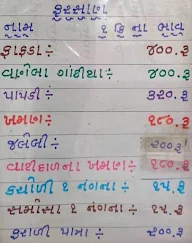 ફરસાણ
નામ ૧ કિ ના ભાવ
ફાફડા ÷ ૪૦૦.રૂ
વાણેલા ગાંઠીયા ÷ ૪૦૦.રૂ
પાપડી ÷ ૩૨૦.રૂ
ખમણ ÷ ૧૮૦.રૂ
જલેબી ÷ ૨૦૦રૂ
વાટીદાળના ખમણ ÷ ૧૮૦.રૂ
કચોળી ૧ નંગના ÷ ૧૫.રૂ
સમોસા ૧ નંગના ÷ ૧૫.રૂ
ફરાળી પાત્રા ÷ ૨૦૦.રૂ